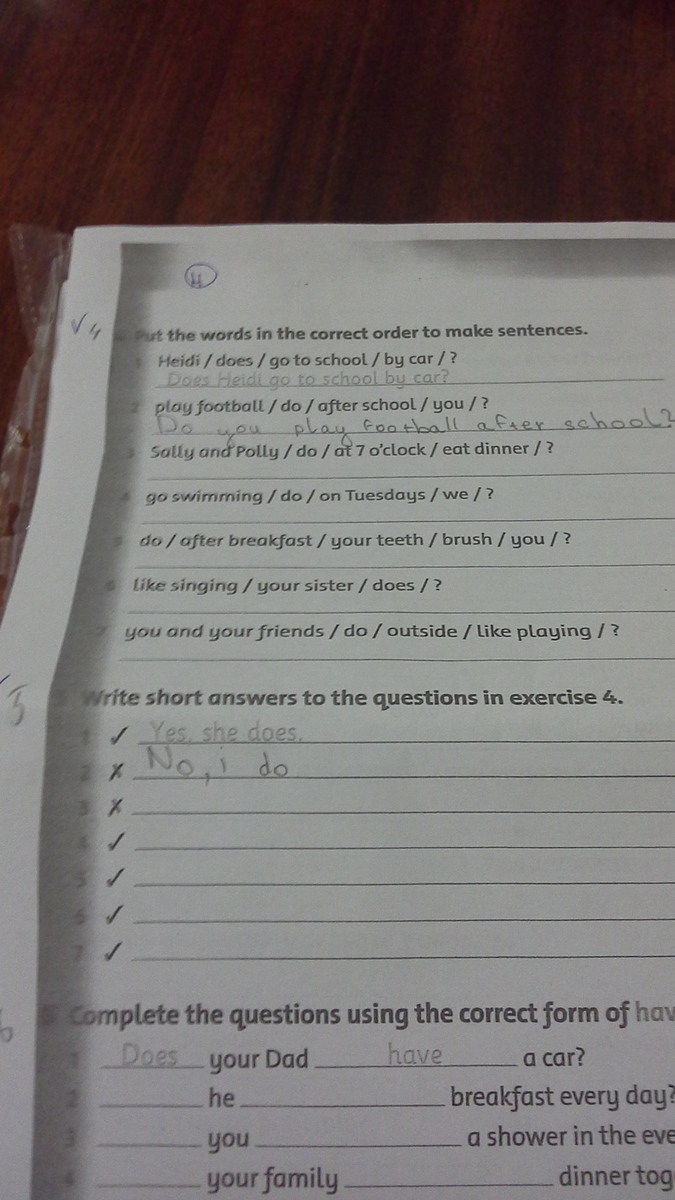 4
√ 4
Put the words in the correct order to make sentences.
1 Heidi / does / go to school / by car / ?
Does Heidi go to school by car?
2 play football / do / after school / you / ?
Do you play football after school?
3 Sally and Polly / do / at 7 o'clock / eat dinner / ?
4 go swimming / do / on Tuesdays / we / ?
5 do / after breakfast / your teeth / brush / you / ?
6 like singing / your sister / does / ?
7 you and your friends / do / outside / like playing / ?
5 Write short answers to the questions in exercise 4.
1 ✓ Yes, she does.
2 ✗ No, i do
3 ✗
4 ✓
5 ✓
6 ✓
7 ✓
Complete the questions using the correct form of hav
1 Does your Dad have a car?
2 he breakfast every day?
3 you a shower in the eve
4 your family dinner tog